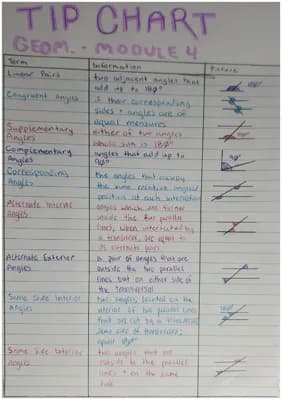 TIP CHART
GEOM. - MODULE 4
Term Information Picture
Linear Pairs two adjacent angles that
add up to 180°
Congruent Angles if their corresponding
sides + angles are of
equal measures
Supplementary Angles either of two angles
whose sum is 180°
Complementary Angles angles that add up to
90°
Corresponding Angles the angles that occupy
the same relative angular
position at each intersection
Alternate Interior Angles angles which are formed
inside the two parallel
lines, when intersected by
a transversal, are equal to
its alternate pairs
Alternate Exterior Angles a pair of angles that are
outside the two parallel
lines but on either side of
the transversal
Same Side Interior Angles two angles located on the
interior of two parallel lines
that are cut by a transversal,
same side of transversal,
equal 180°
Same Side Exterior Angles two angles that are
outside to the parallel
lines + on the same
side